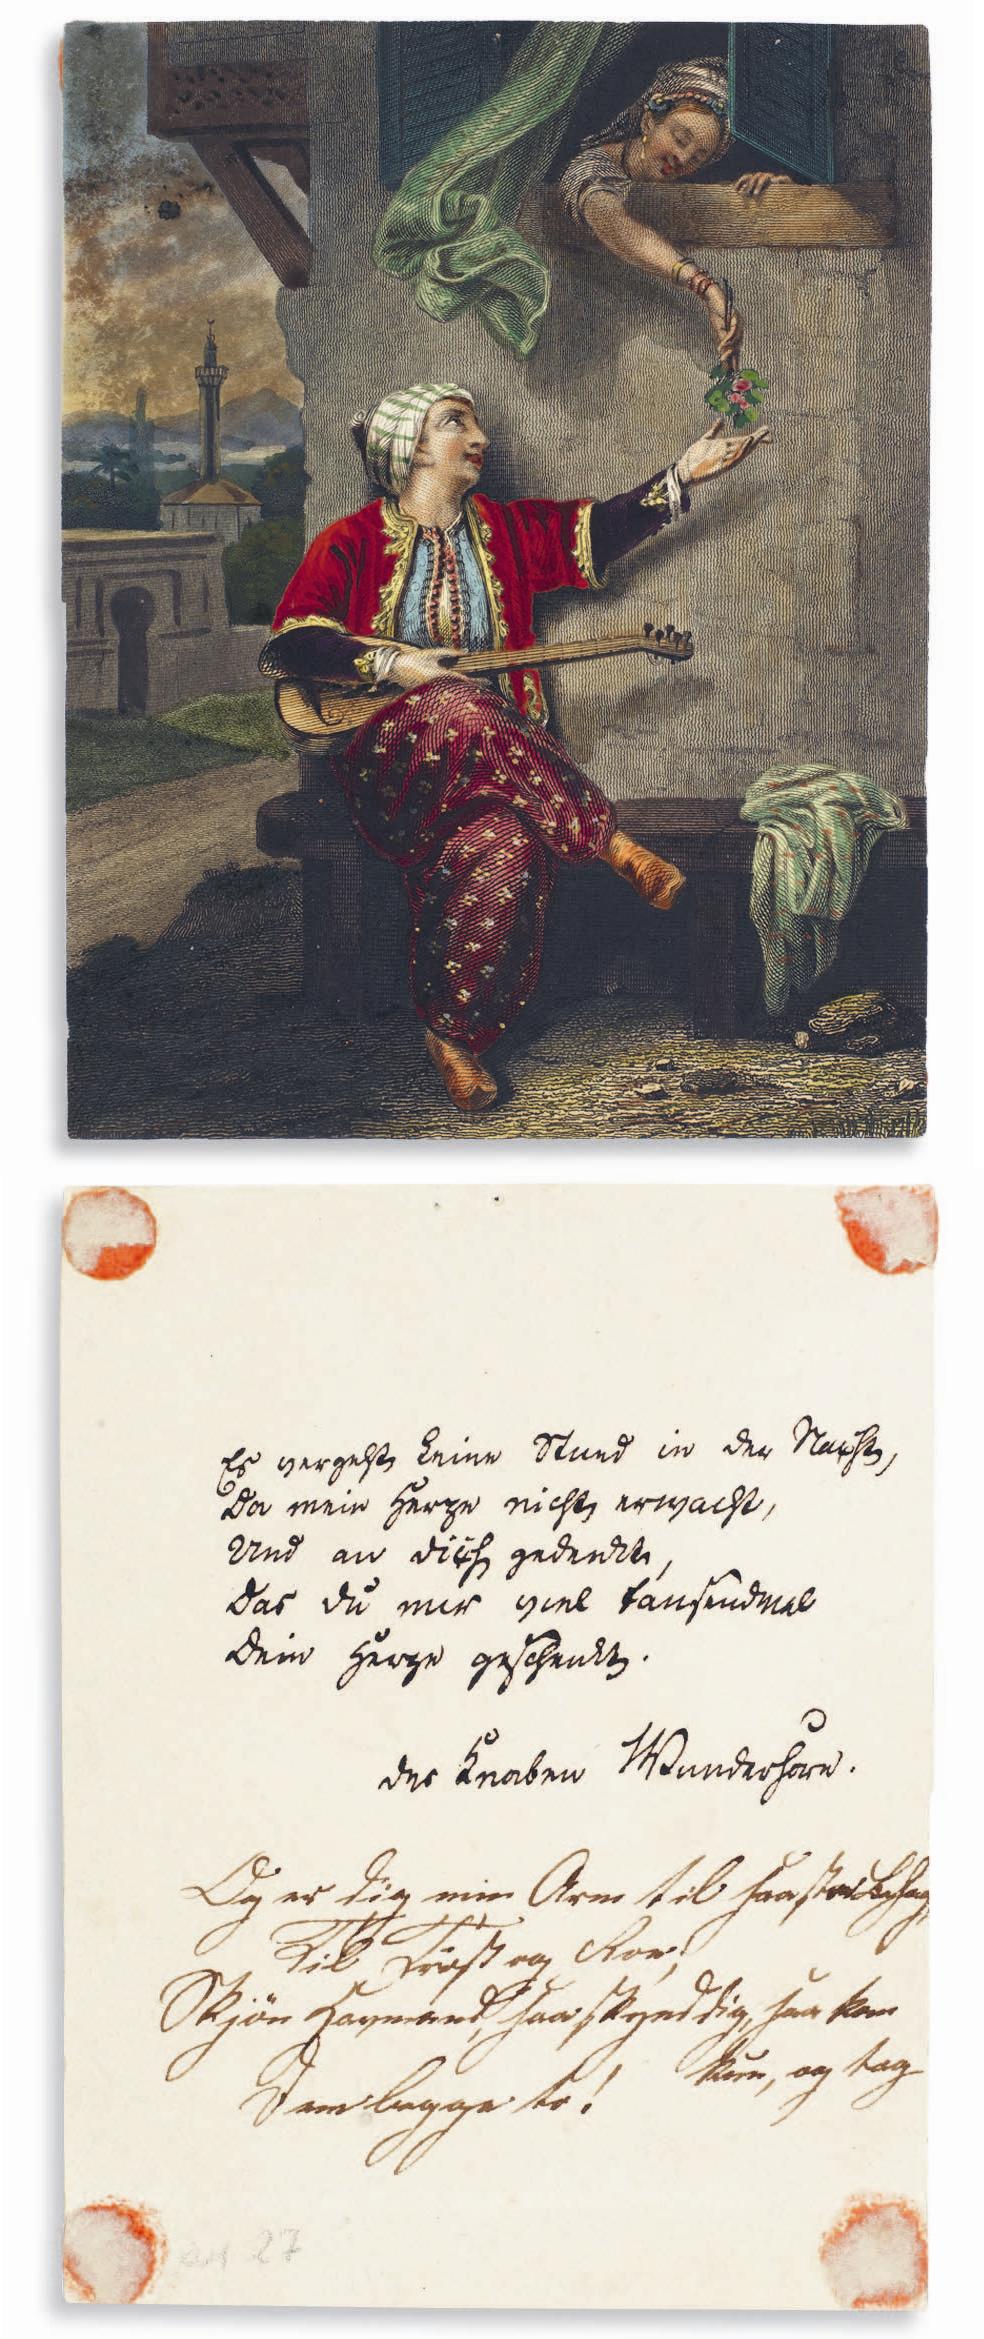 Es vergeht keine Stund in der Nacht,
Da mein Herze nicht erwacht,
Und an dich gedenckt,
Das du mir viel tausendmal
Dein Herze geschenckt.
des Knaben Wunderhorn.
Og er dig min Arm til saa stor Behag,
Til Trøst og Roe;
Skjön Havmand, saa skynd dig, saa kom
kun, og tag
Dem begge to!
27